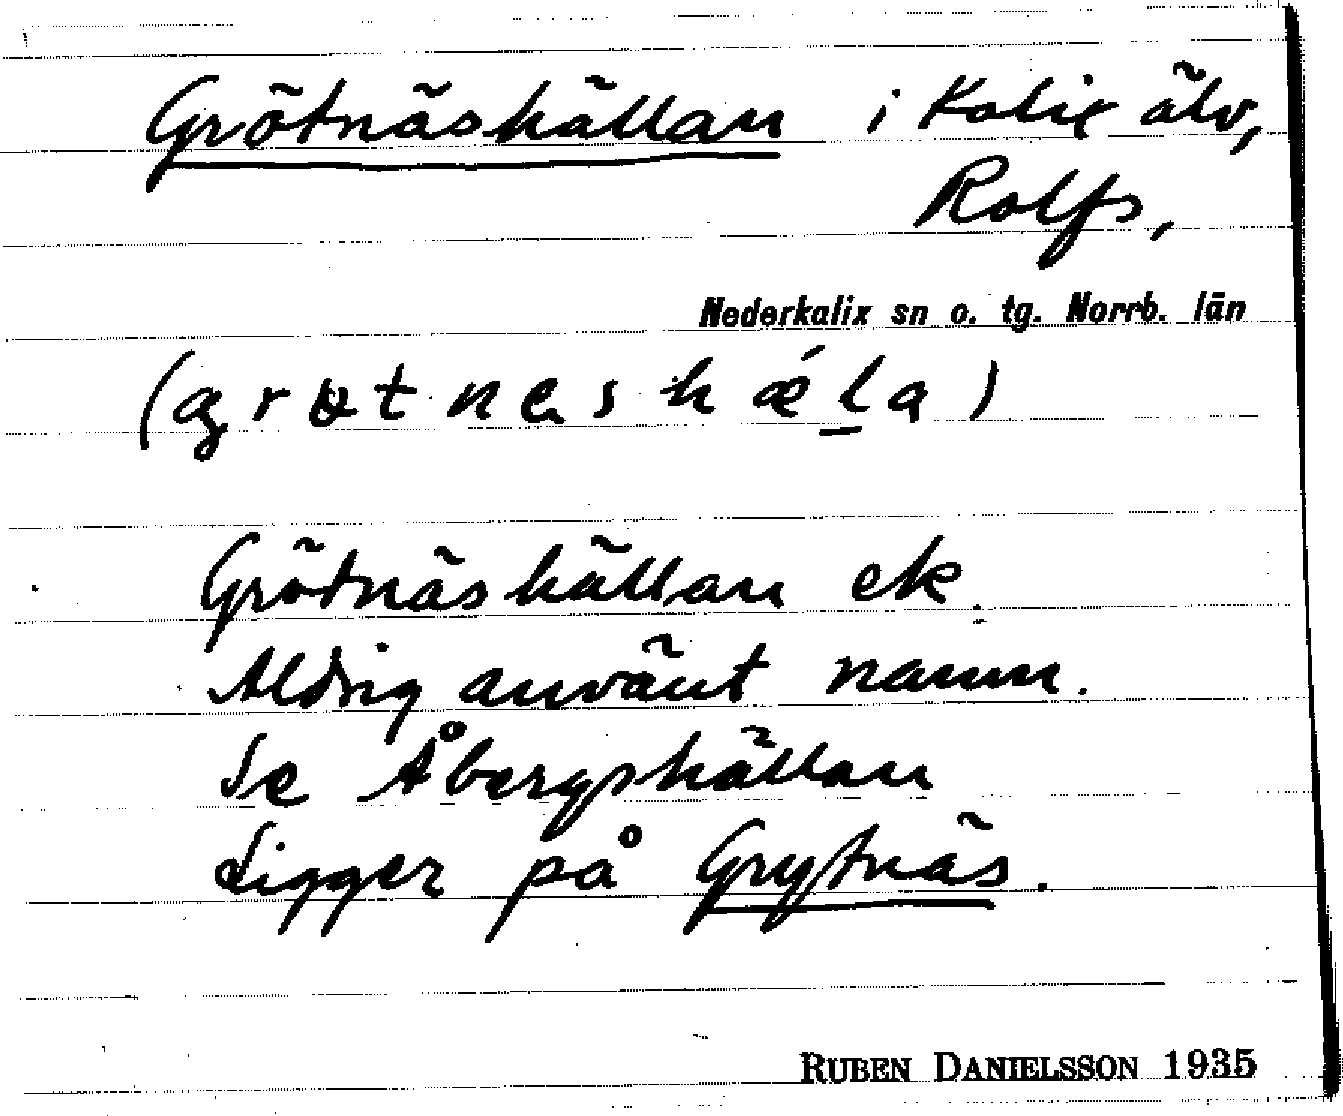 Grötnäshällan i Kalix älv,
Rolfs,
Nederkalix sn o. tg. Norrb. län
(grøtneshǽla)
Grötnäshällan ek.
Aldrig använt namn.
Se Åbergshällan
Ligger på Grytnäs.
RUBEN DANIELSSON 1935